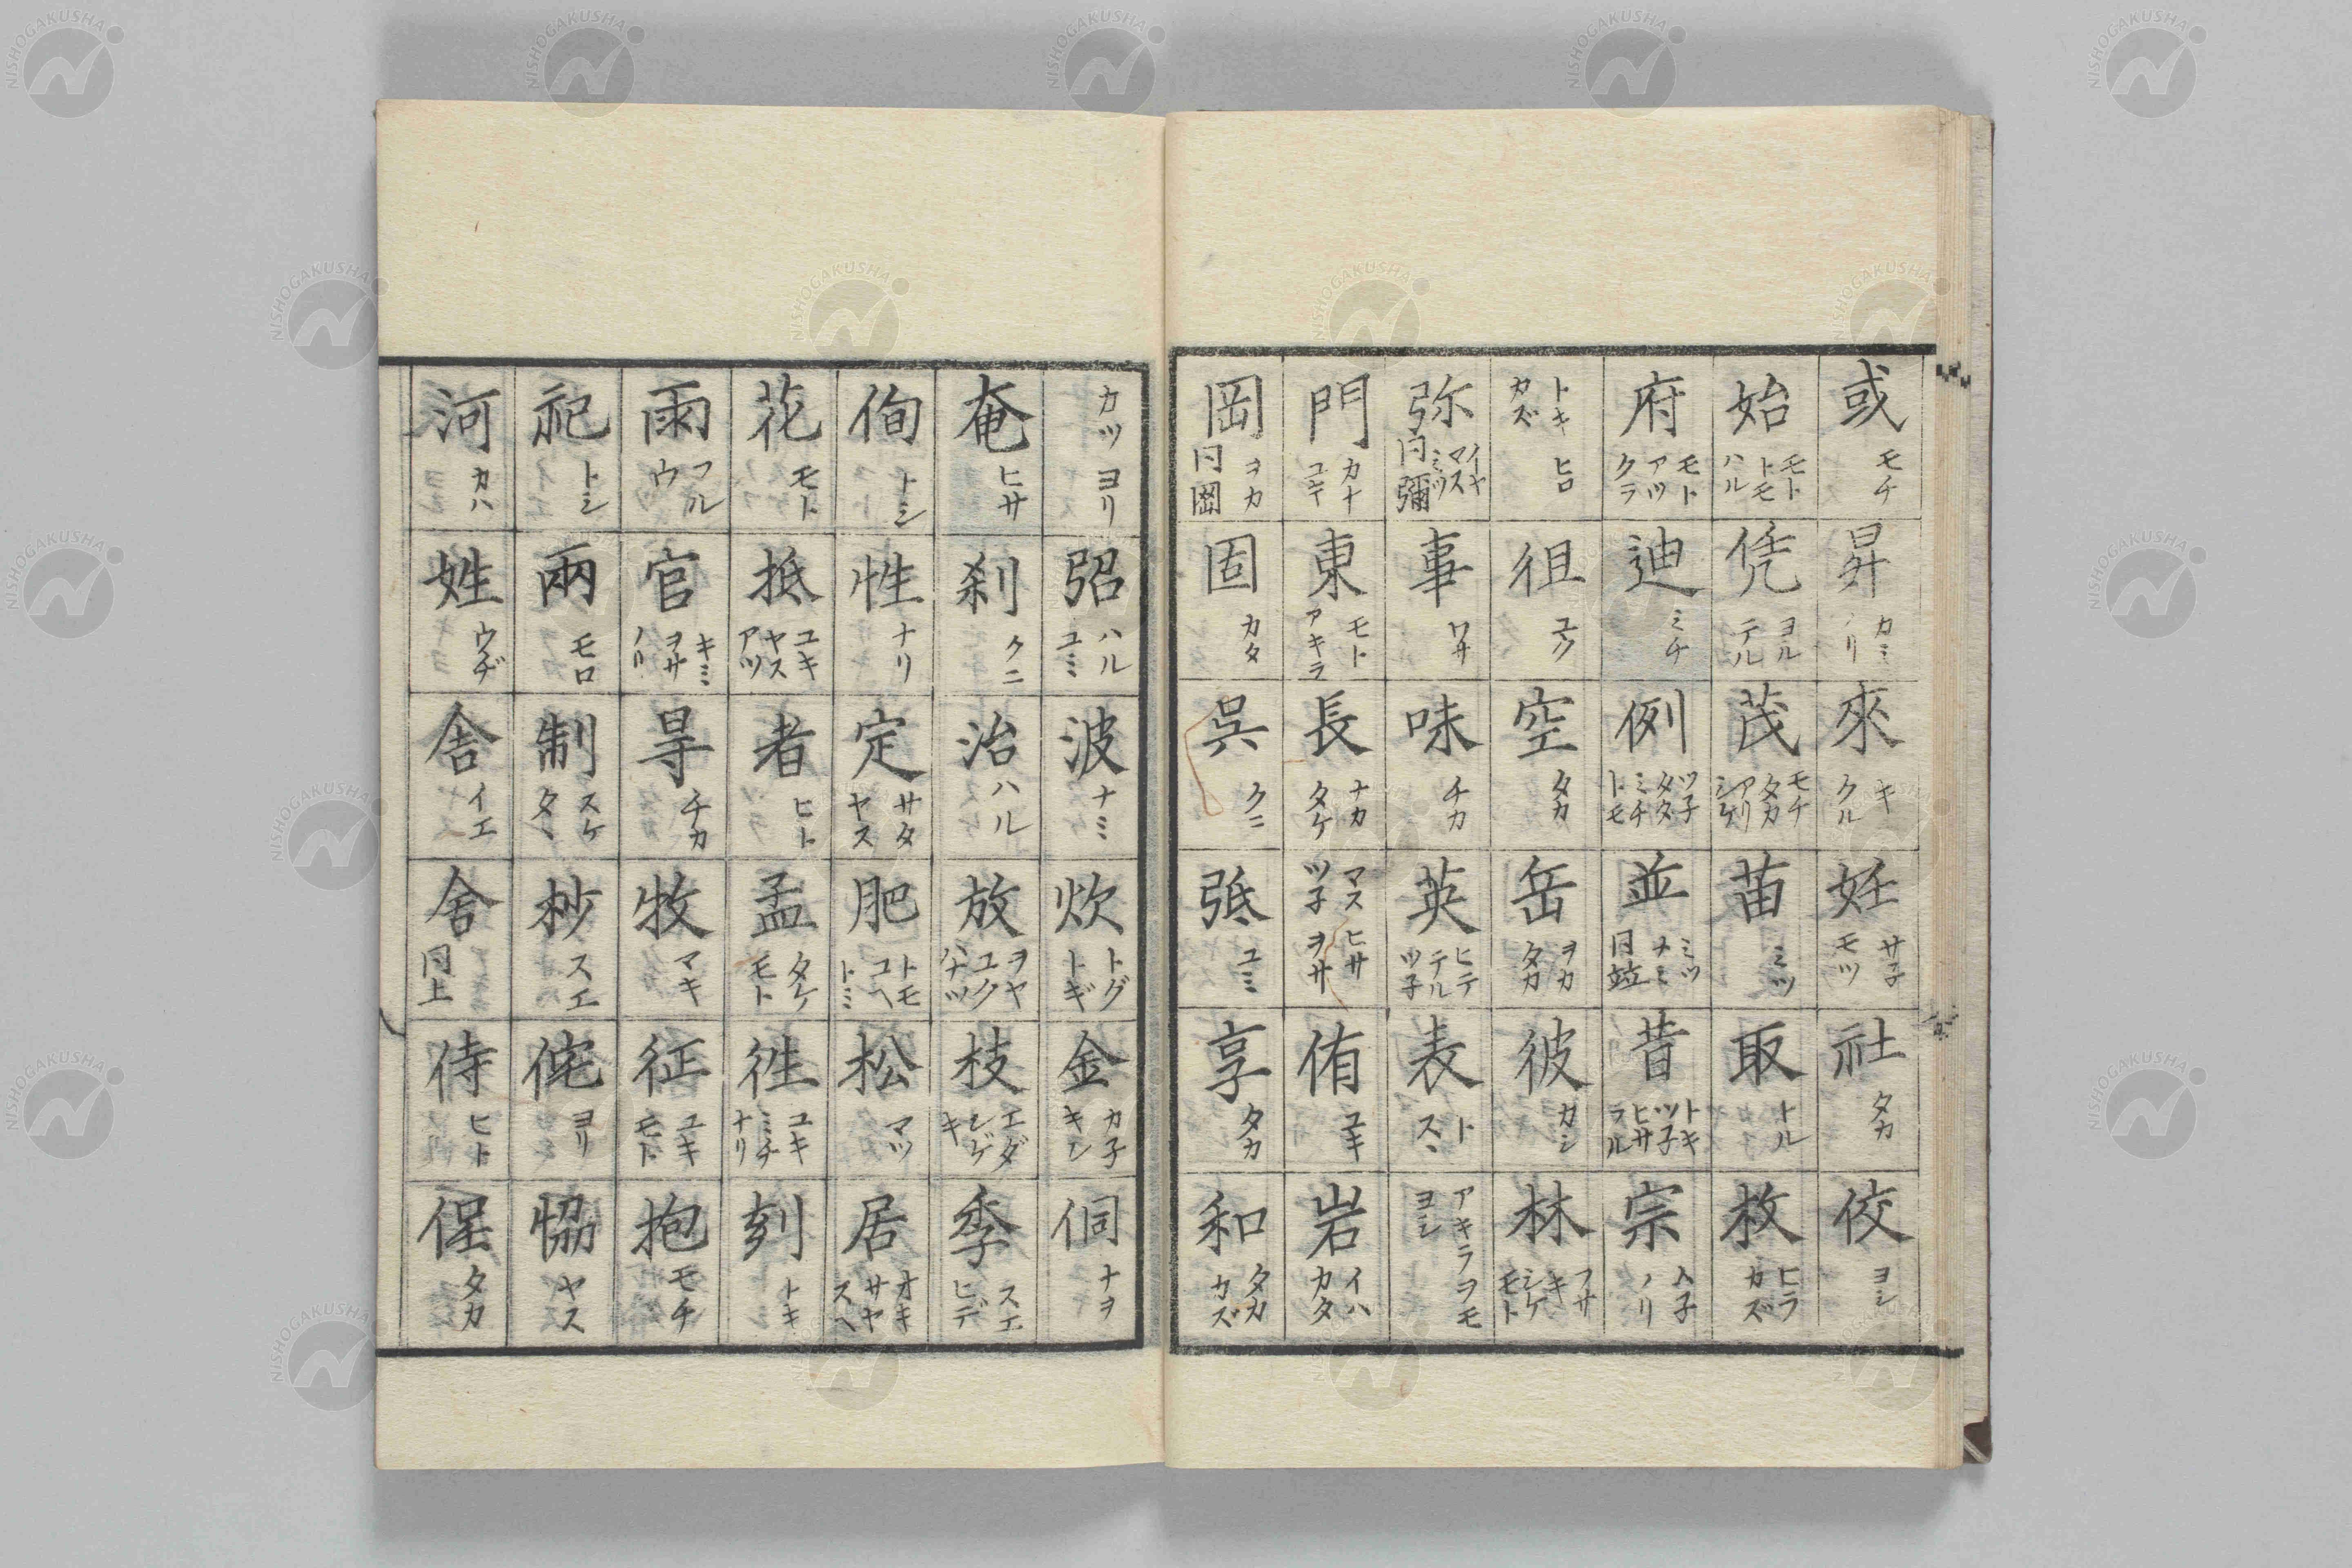 或 モチ
昇 カミ ノリ
來 キ クル
妊 サ子 モツ
社 タカ
佼 ヨシ
始 モト トモ ハル
凭 ヨル テル
茂 モチ タカ アリ シゲ
苗 ミツ
取 トル
枚 ヒラ カズ
府 モト アツ クラ
迪 ミチ
例 ツ子 タタ ミチ トモ
並 ミツ ナミ 同竝
昔 トキ ツ子 ヒサ ラル
宗 ム子 ノリ
トキ ヒロ カズ
徂 ユク
空 タカ
岳 ヲカ タカ
彼 カシ
林 フサ キ シケ モト
弥 イヤ マス ミツ 同彌
事 ワサ
味 チカ
英 ヒテ テル ツ子
表 ト スヽ
アキラ ヲモ ヨシ
門 カナ ユキ
東 モト アキラ
長 ナカ タケ
マス ヒサ ツ子 ヲサ
侑 ユキ
岩 イハ カタ
岡 ヲカ 同
固 カタ
呉 クニ
弤 ユミ
享 タカ
和 タカ カズ
カツ ヨリ
弨 ハル ユミ
波 ナミ
炊 トグ トギ
金 カ子 キン
侗 ナヲ
奄 ヒサ
刹 クニ
治 ハル
放 ヲヤ ユク ハナツ
枝 エダ シゲ キ
季 スエ ヒデ
侚 トシ
性 ナリ
定 サタ ヤス
肥 トモ コヘ トミ
松 マツ
居 オキ サヤ スヘ
花 モト
抵 ユキ ヤス アツ
者 ヒト
孟 タケ モト
徃 ユキ ミチ ナリ
刻 トキ
雨 フル ウ
官 キミ ヲサ ノリ
㝵 チカ
牧 マキ
征 ユキ モト
抱 モチ
祀 トシ
兩 モロ
制 スケ タヽ
杪 スエ
侘 ヨリ
恊 ヤス
河 カハ
姓 ウヂ
舎 イエ
舍 同上
侍 ヒト
侱 タカ